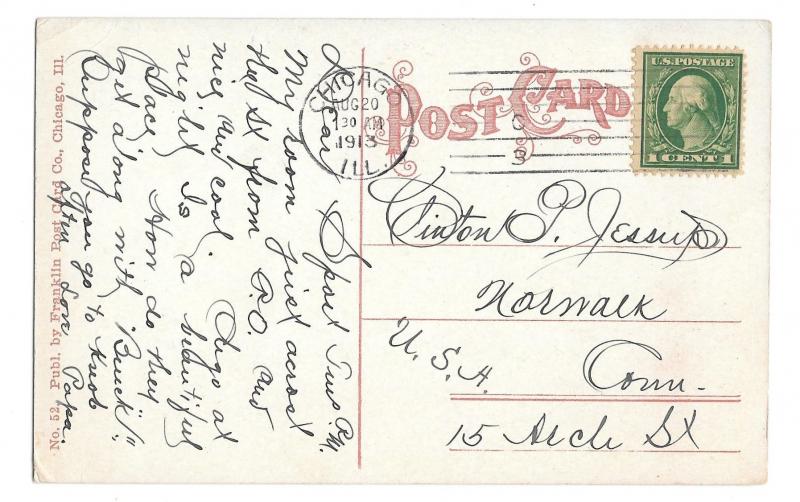 No. 52. Publ. by Franklin Post Card Co., Chicago, Ill.
POST CARD
U.S. POSTAGE
1 CENT 1
CHICAGO
AUG 20
1 30 AM
1913
ILL.
C
3
Dear Sport Tues. P.M.
My room just across
the St from P.O. and
nice and cool. Chgo at
night is a beautiful
place. How do they
get along with "Buick".
Suppose you go to Knob
often Love Papa.
Clinton P. Jessup
Norwalk
Conn.
U.S.A.
15 Arch St